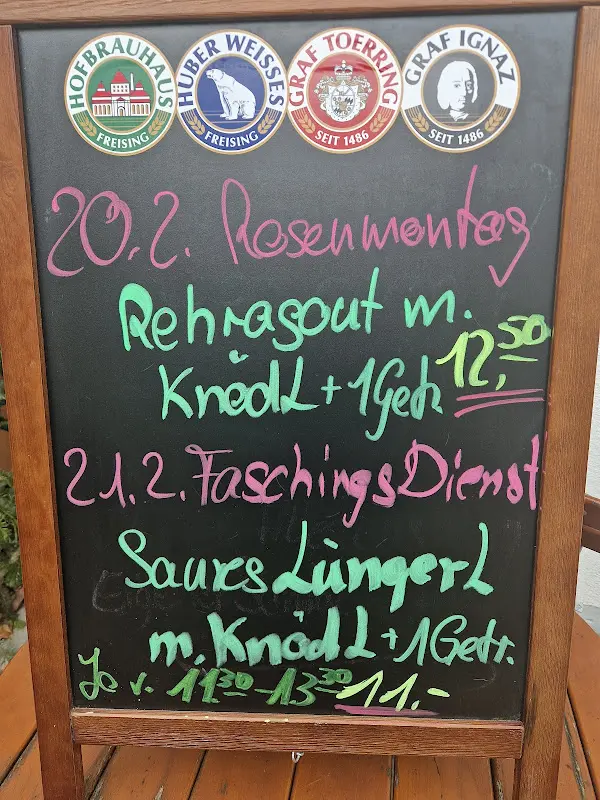 HOFBRAUHAUS FREISING
HUBER WEISSES FREISING
GRAF TOERRING SEIT 1486
GRAF IGNAZ SEIT 1486
20.2. Rosenmontag
Rehragout m.
Knödl + 1 Getr. 12,50
21.2. FaschingsDienst
Saures Lüngerl
m. Knödl + 1 Getr.
v. 11 30 - 13 30 11.-